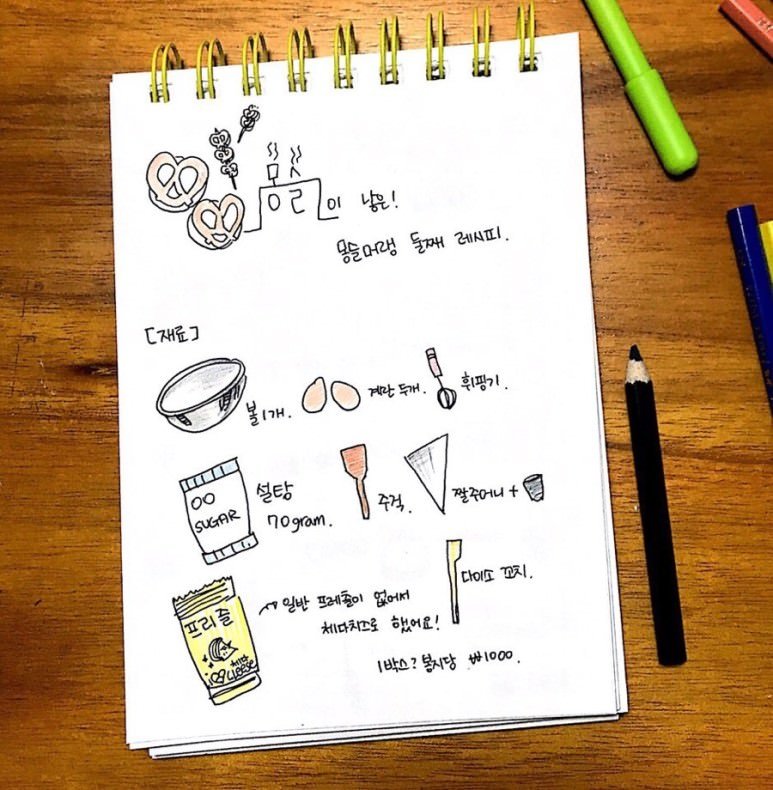 요리이 낳은!
몽슬머랭 둘째 레시피.
[재료]
볼 1개.
계란 두개.
휘핑기.
OO
SUGAR
설탕
70gram.
주걱.
짤주머니 +
프리즐
체다
CHEESE
일반 프레즐이 없어서
체다치즈로 했어요!
다이소 꼬치.
1박스? 봉지당 ₩1000.